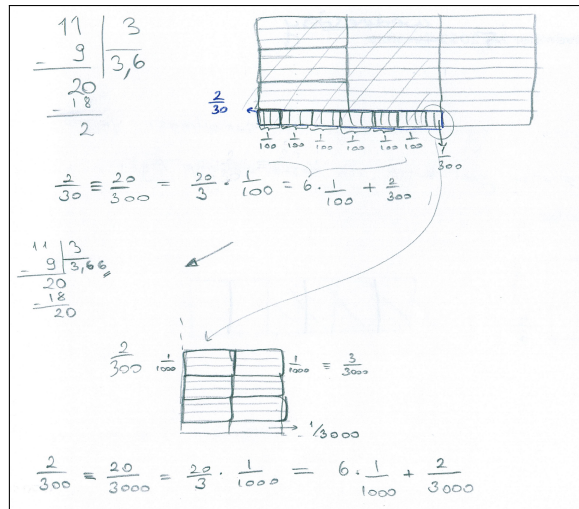 11 | 3
- 9 | 3,6
20
- 18
2
2/30
1/100 1/100 1/100 1/100 1/100 1/100
1/300
2/30 ≡ 20/300 = 20/3 · 1/100 = 6 · 1/100 + 2/300
11 | 3
- 9 | 3,66
20
- 18
20
2/300 1/1000 1/1000 ≡ 3/3000
1/3000
2/300 ≡ 20/3000 = 20/3 · 1/1000 = 6 · 1/1000 + 2/3000